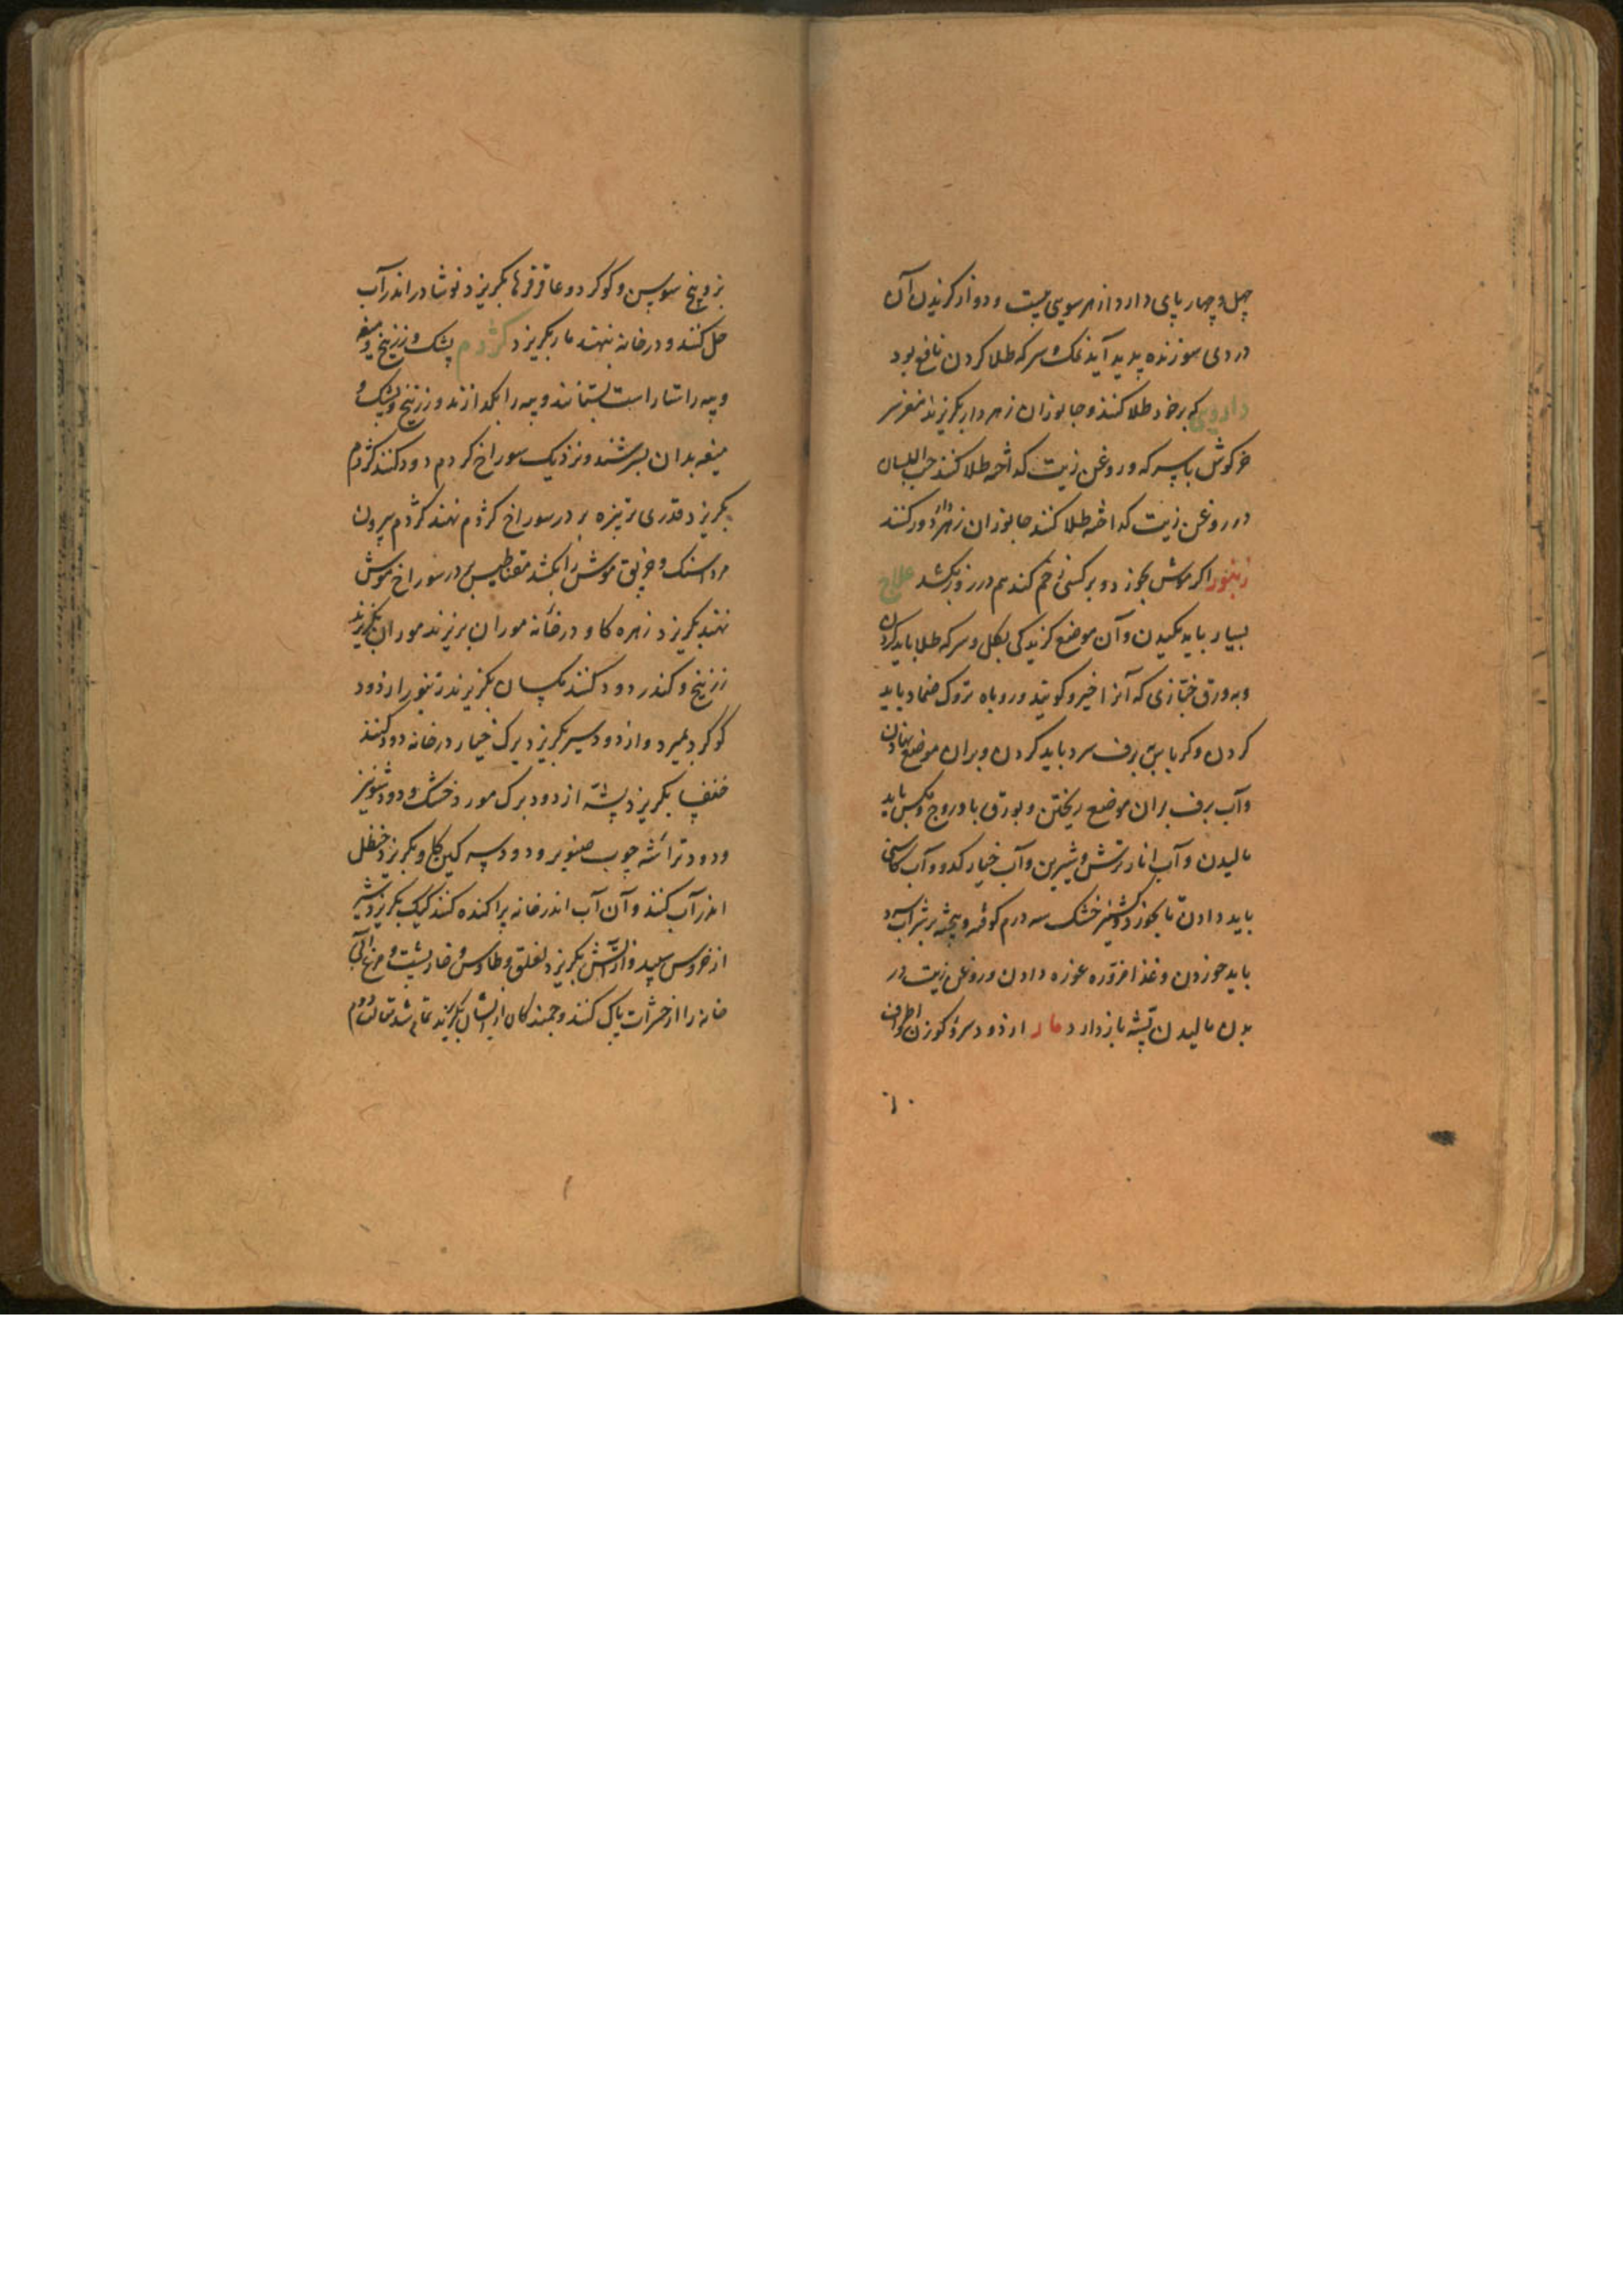 چهل و چهار پای دارد از هر سویی بیست و دو از کزیدن آن
دردی سوزنده پدید آید نمک و سرکه طلا کردن نافع بود
دارویی که بر خود طلا کنند و جانوران زهردار بکریزند مغز سر
خرکوش با سرکه و روغن زیت کداخته طلا کنند حب البلسان
در روغن زیت کداخته طلا کنند جانوران زهردار دور کنند
زنبور اکر موش بخورد و بر کسی زخم کند هم در روز بکشد علاج
بسیار باید مکیدن و آن موضع کزیدکی بکل و سرکه طلا باید کردن
و به ورق خبازی که آنرا خیرو کویند و روباه تزوک ضماد باید
کردن و کرباس برف سرد باید کردن و بران موضع نهادن
و آب برف بران موضع ریختن و بورق بادروج و مکس باید
مالیدن و آب انار ترش و شیرین و آب خیار کدو و آب کاسنی
باید دادن تا بخورد و کشنیز خشک سه درم کوفته و بیخته بر شراب سرد
باید خوردن و غذا مزوره غوره دادن و روغن زیت در
بدن مالیدن پشه باز دارد مار از دود سرو کوزن و اظلاف
بز و بیخ سوسن و کوکرد و عاقرقرها بکریزد نوشادر اندر آب
حل کنند و در خانه بنهند مار بکریزد کژدم پشک و زرنیخ و میعه
و پیه راستاراست بستانند و پیه را بکدازند و زرنیخ و پشک و
میعه بدان بسرشند و نزدیک سوراخ کژدم دود کنند کژدم
بکریزد قدری تربزه بر در سوراخ کژدم نهند کژدم بیرون
مرداسنک و خربق موش را بکشد مقناطیس بر در سوراخ موش
نهند بکریزد زهره کاو در خانه موران بریزند موران بکریزند
زرنیخ و کندر دود کنند مکسان بکریزند زنبور از دود
کوکرد بمیرد و از دود سیر بکریزد برک خیار در خانه دود کنند
خنفسا بکریزد پشه از دود برک مورد خشک و دود شونیز
و دود تراشه چوب صنوبر و دود سرکین کاو بکریزد حنظل
اندر آب کنند و آن آب اندر خانه پراکنده کنند کیک بکریزد شیر
از خروس سپید و از آتش بکریزد لقلق و طاوس و خارپشت و مرغ آبی
خانه را از حشرات پاک کنند و جمندکان از ایشان بکریزند تمام شد مقالت دوم